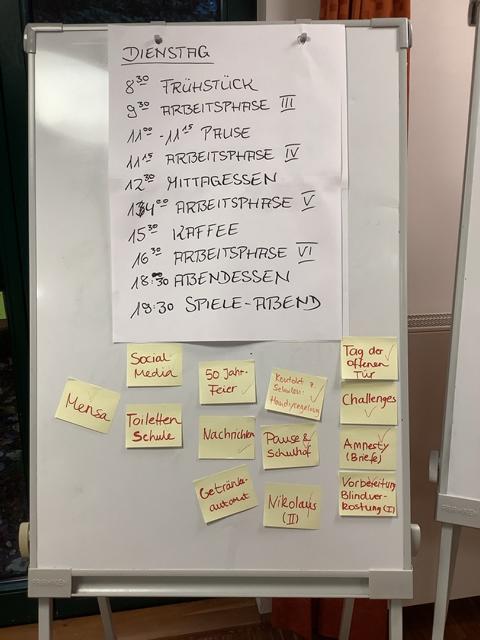 DIENSTAG
8³⁰ FRÜHSTÜCK
9³⁰ ARBEITSPHASE III
11⁰⁰ - 11¹⁵ PAUSE
11¹⁵ ARBEITSPHASE IV
12³⁰ MITTAGESSEN
14⁰⁰ ARBEITSPHASE V
15³⁰ KAFFEE
16³⁰ ARBEITSPHASE VI
18:30 ABENDESSEN
19:30 SPIELE-ABEND
Mensa
Social
Media
Toiletten
Schule
50 Jahr-
Feier
Nachrichten
Getränke-
automat
Kontakt z.
Schulen:
Handyregelung
Pause &
Schulhof
Nikolaus
(II)
Tag der
offenen
Tür
Challenges
Amnesty
(Briefe)
Vorbereitung
Blindver-
kostung (I)